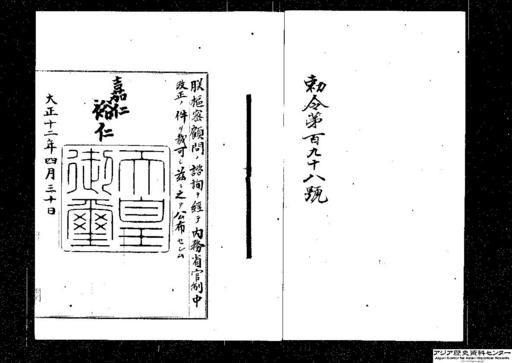 勅令第百九十八號
朕樞密顧問ノ諮詢ヲ經テ内務省官制中
改正ノ件ヲ裁可シ茲ニ之ヲ公布セシム
嘉仁
裕仁
天皇
御璽
大正十二年四月三十日
アジア歴史資料センター
Japan Center for Asian Historical Records